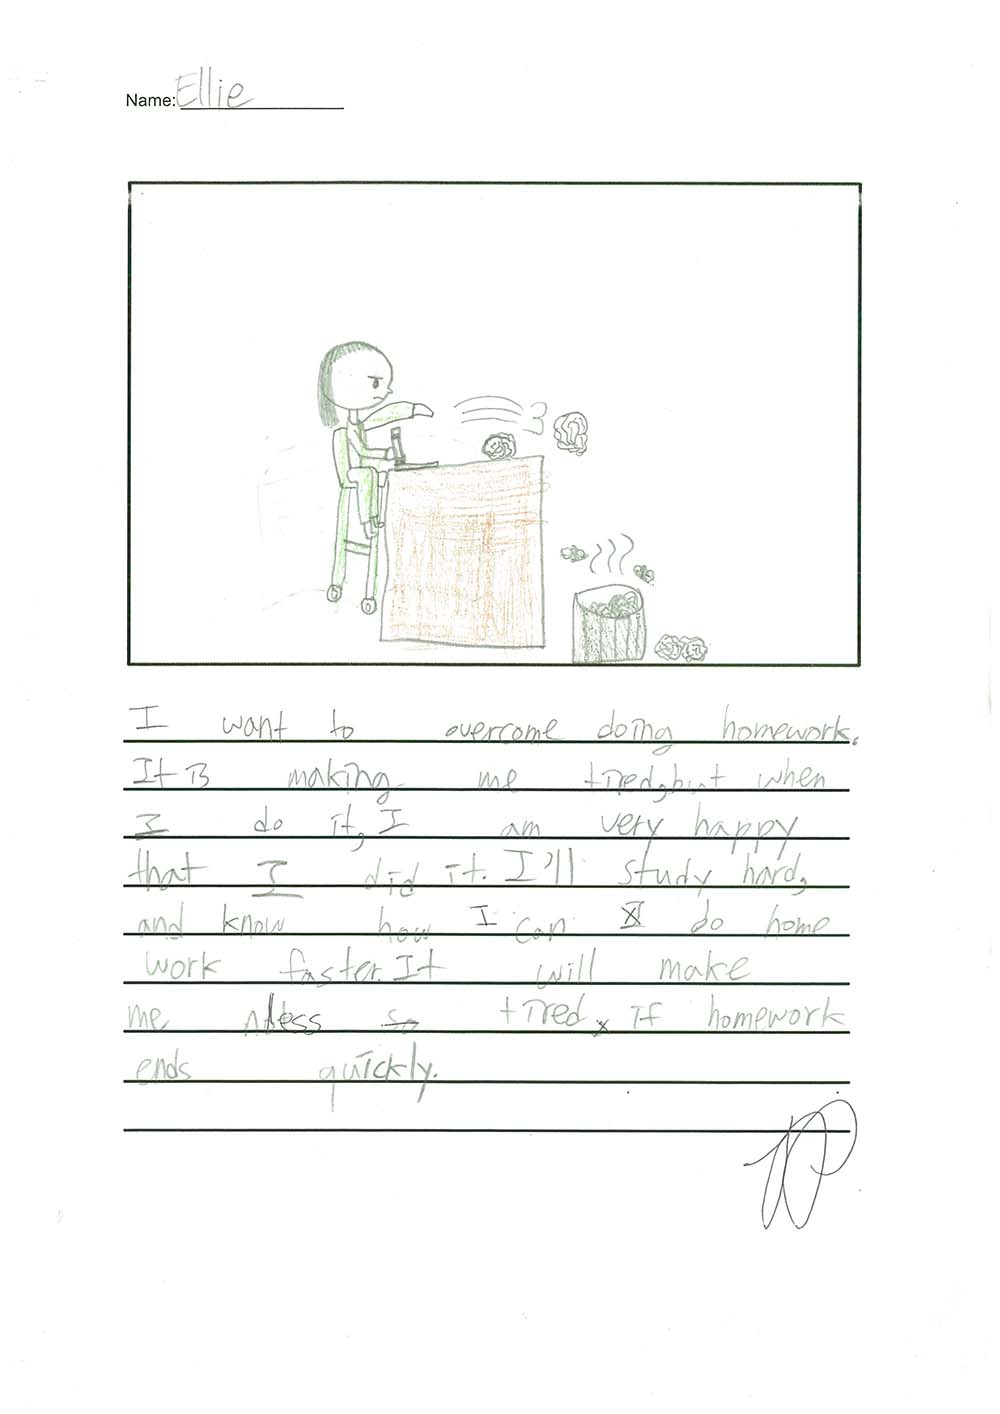 Name: Ellie
I want to overcome doing homework.
It is making me tired, but when
I do it, I am very happy
that I did it. I'll study hard,
and know how I can do home
work faster. It will make
me less tired if homework
ends quickly.